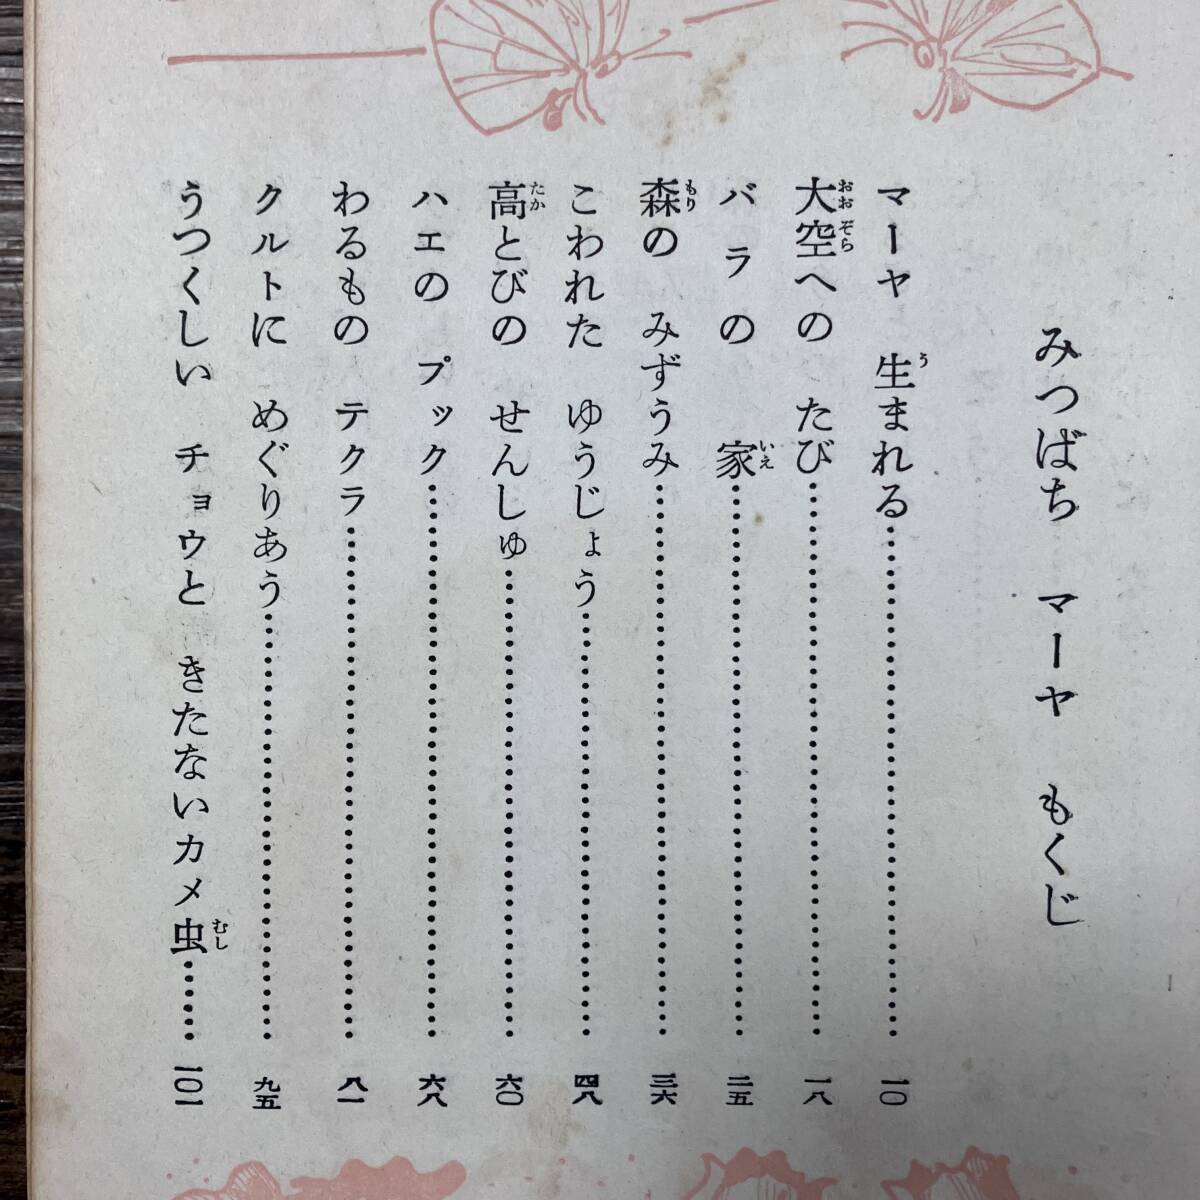 みつばち マーヤ もくじ
マーヤ 生まれる……一〇
大空への たび……一八
バラの 家……二五
森の みずうみ……三六
こわれた ゆうじょう……四八
高とびの せんしゅ……六〇
ハエの プック……六八
わるもの テクラ……八一
クルトに めぐりあう……九五
うつくしい チョウと きたないカメ虫……一〇一